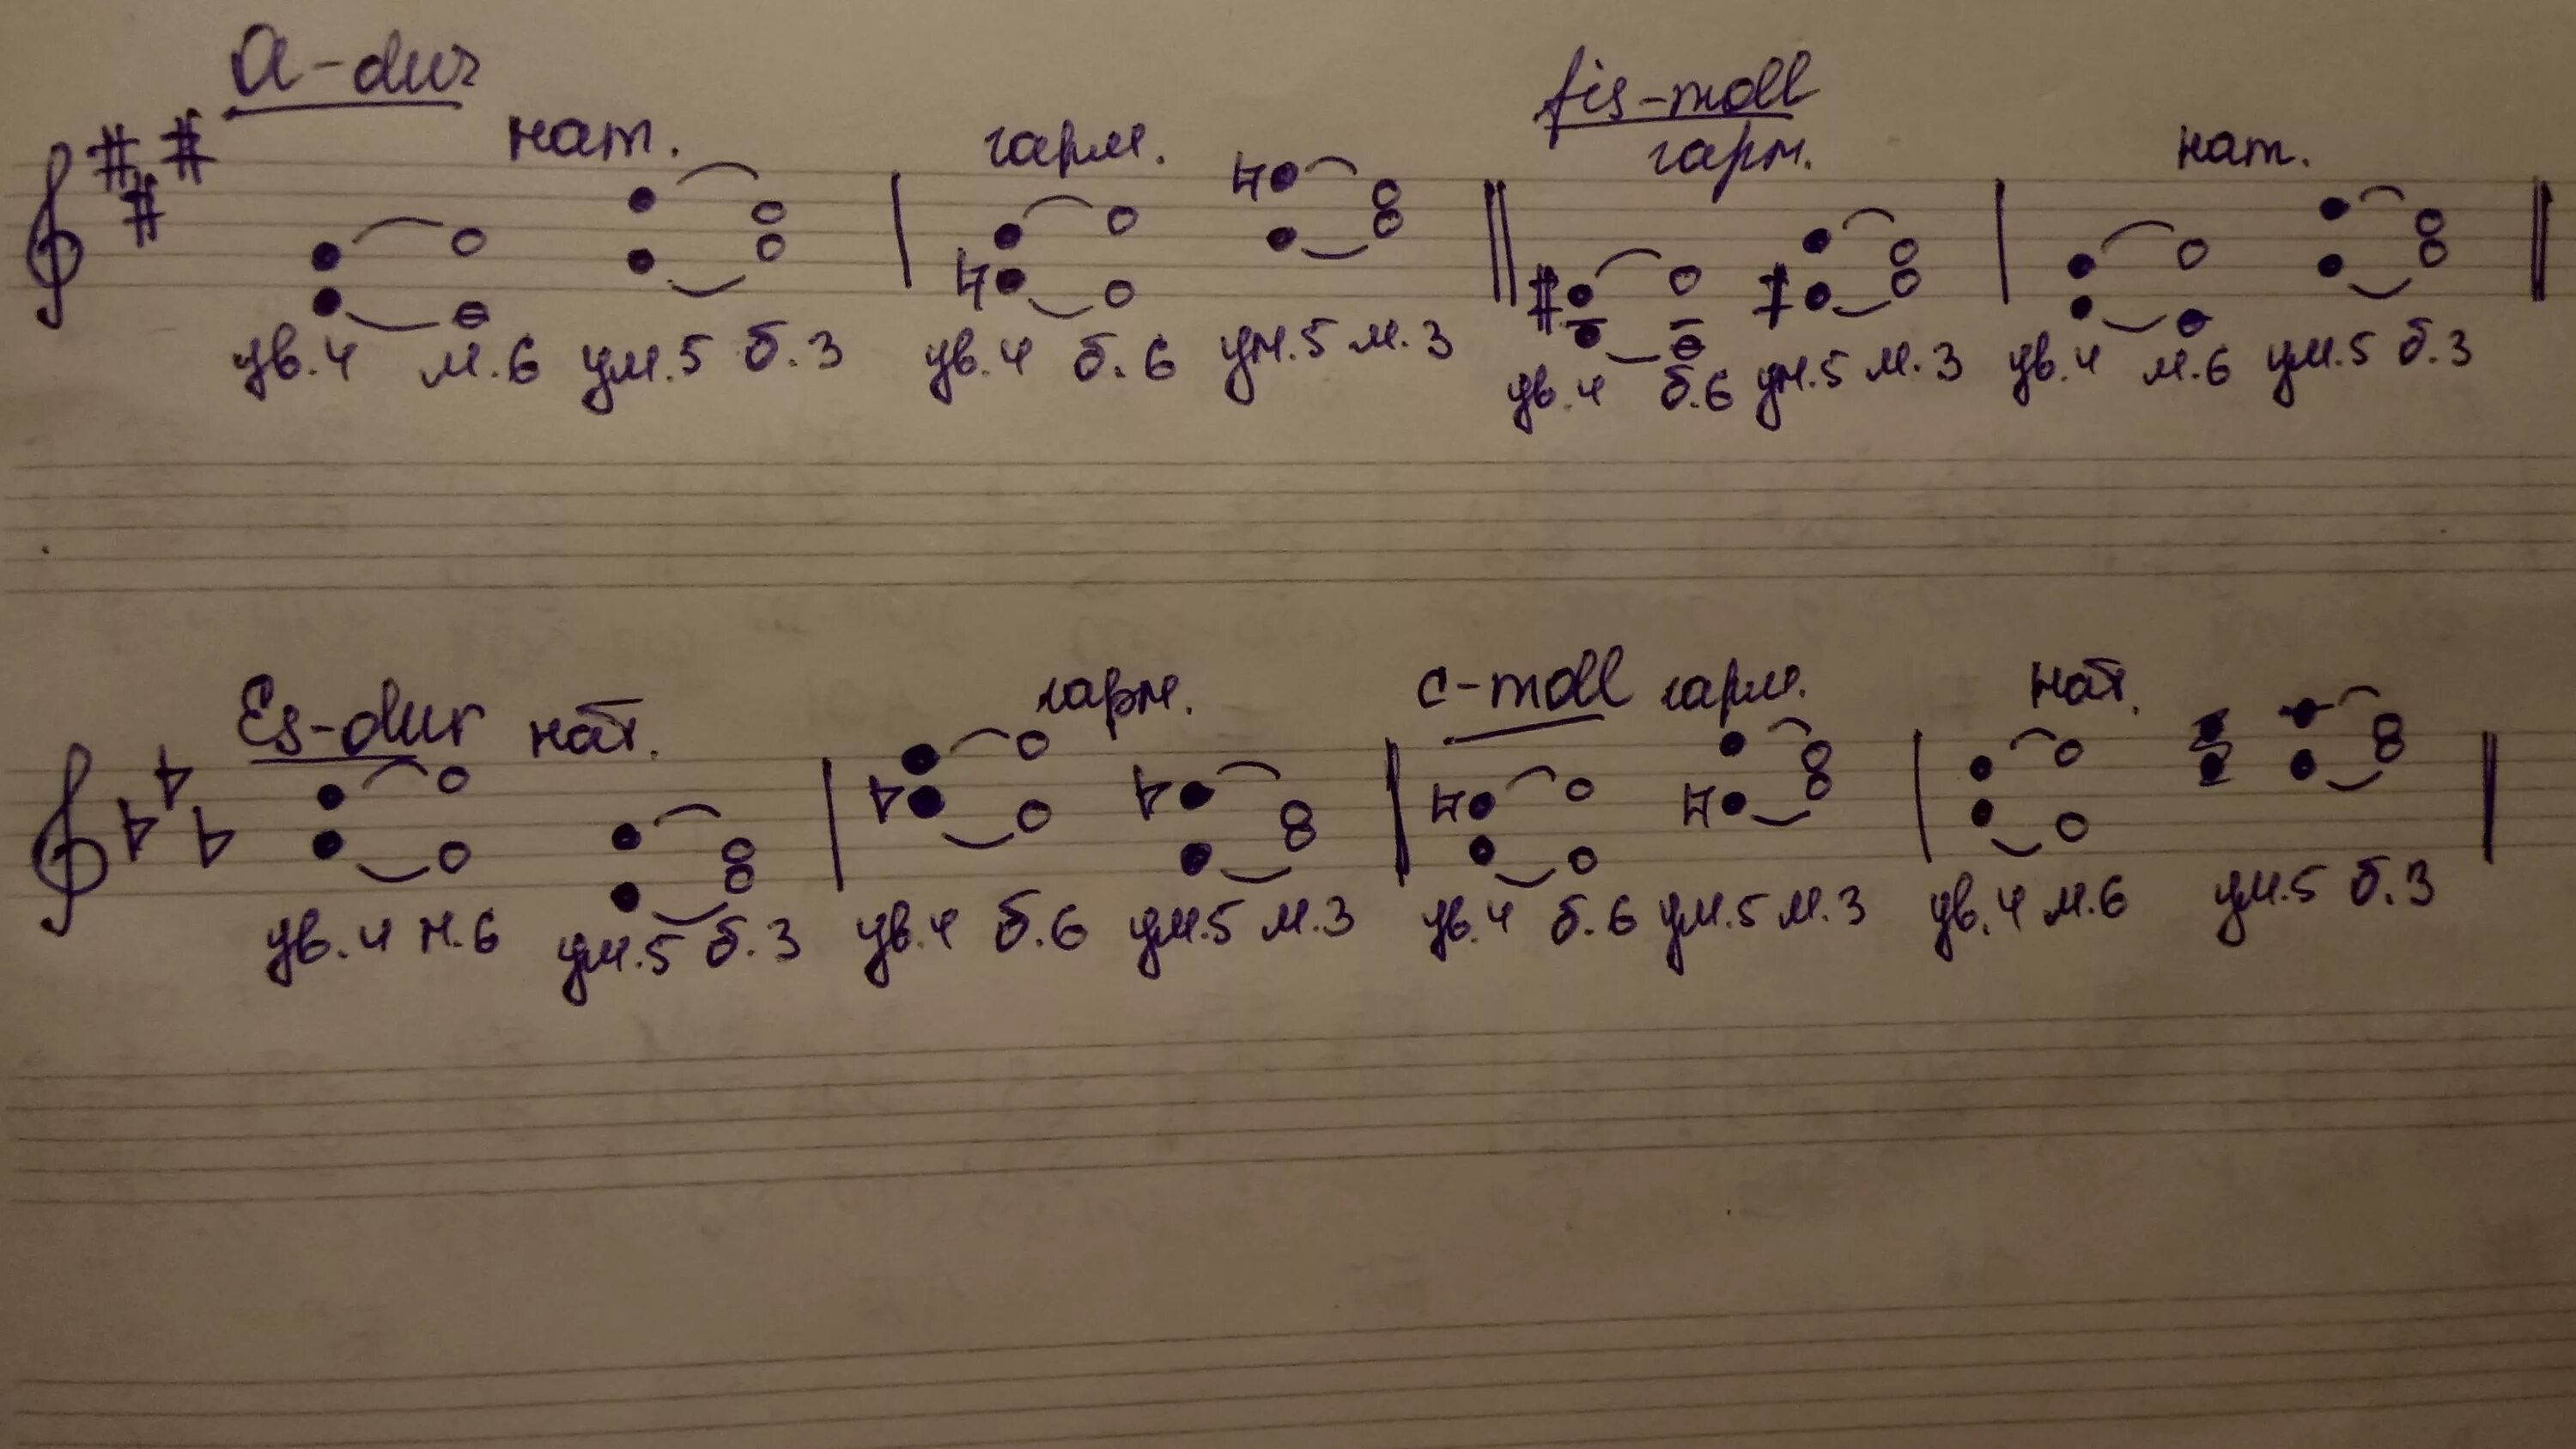 a-dur fis-moll
нат. гарм. гарм. нат.
ув.4 м.6 ум.5 б.3 ув.4 б.6 ум.5 м.3 ув.4 б.6 ум.5 м.3 ув.4 м.6 ум.5 б.3
Es-dur нат. гарм. c-moll гарм. нат.
ув.4 м.6 ум.5 б.3 ув.4 б.6 ум.5 м.3 ув.4 б.6 ум.5 м.3 ув.4 м.6 ум.5 б.3